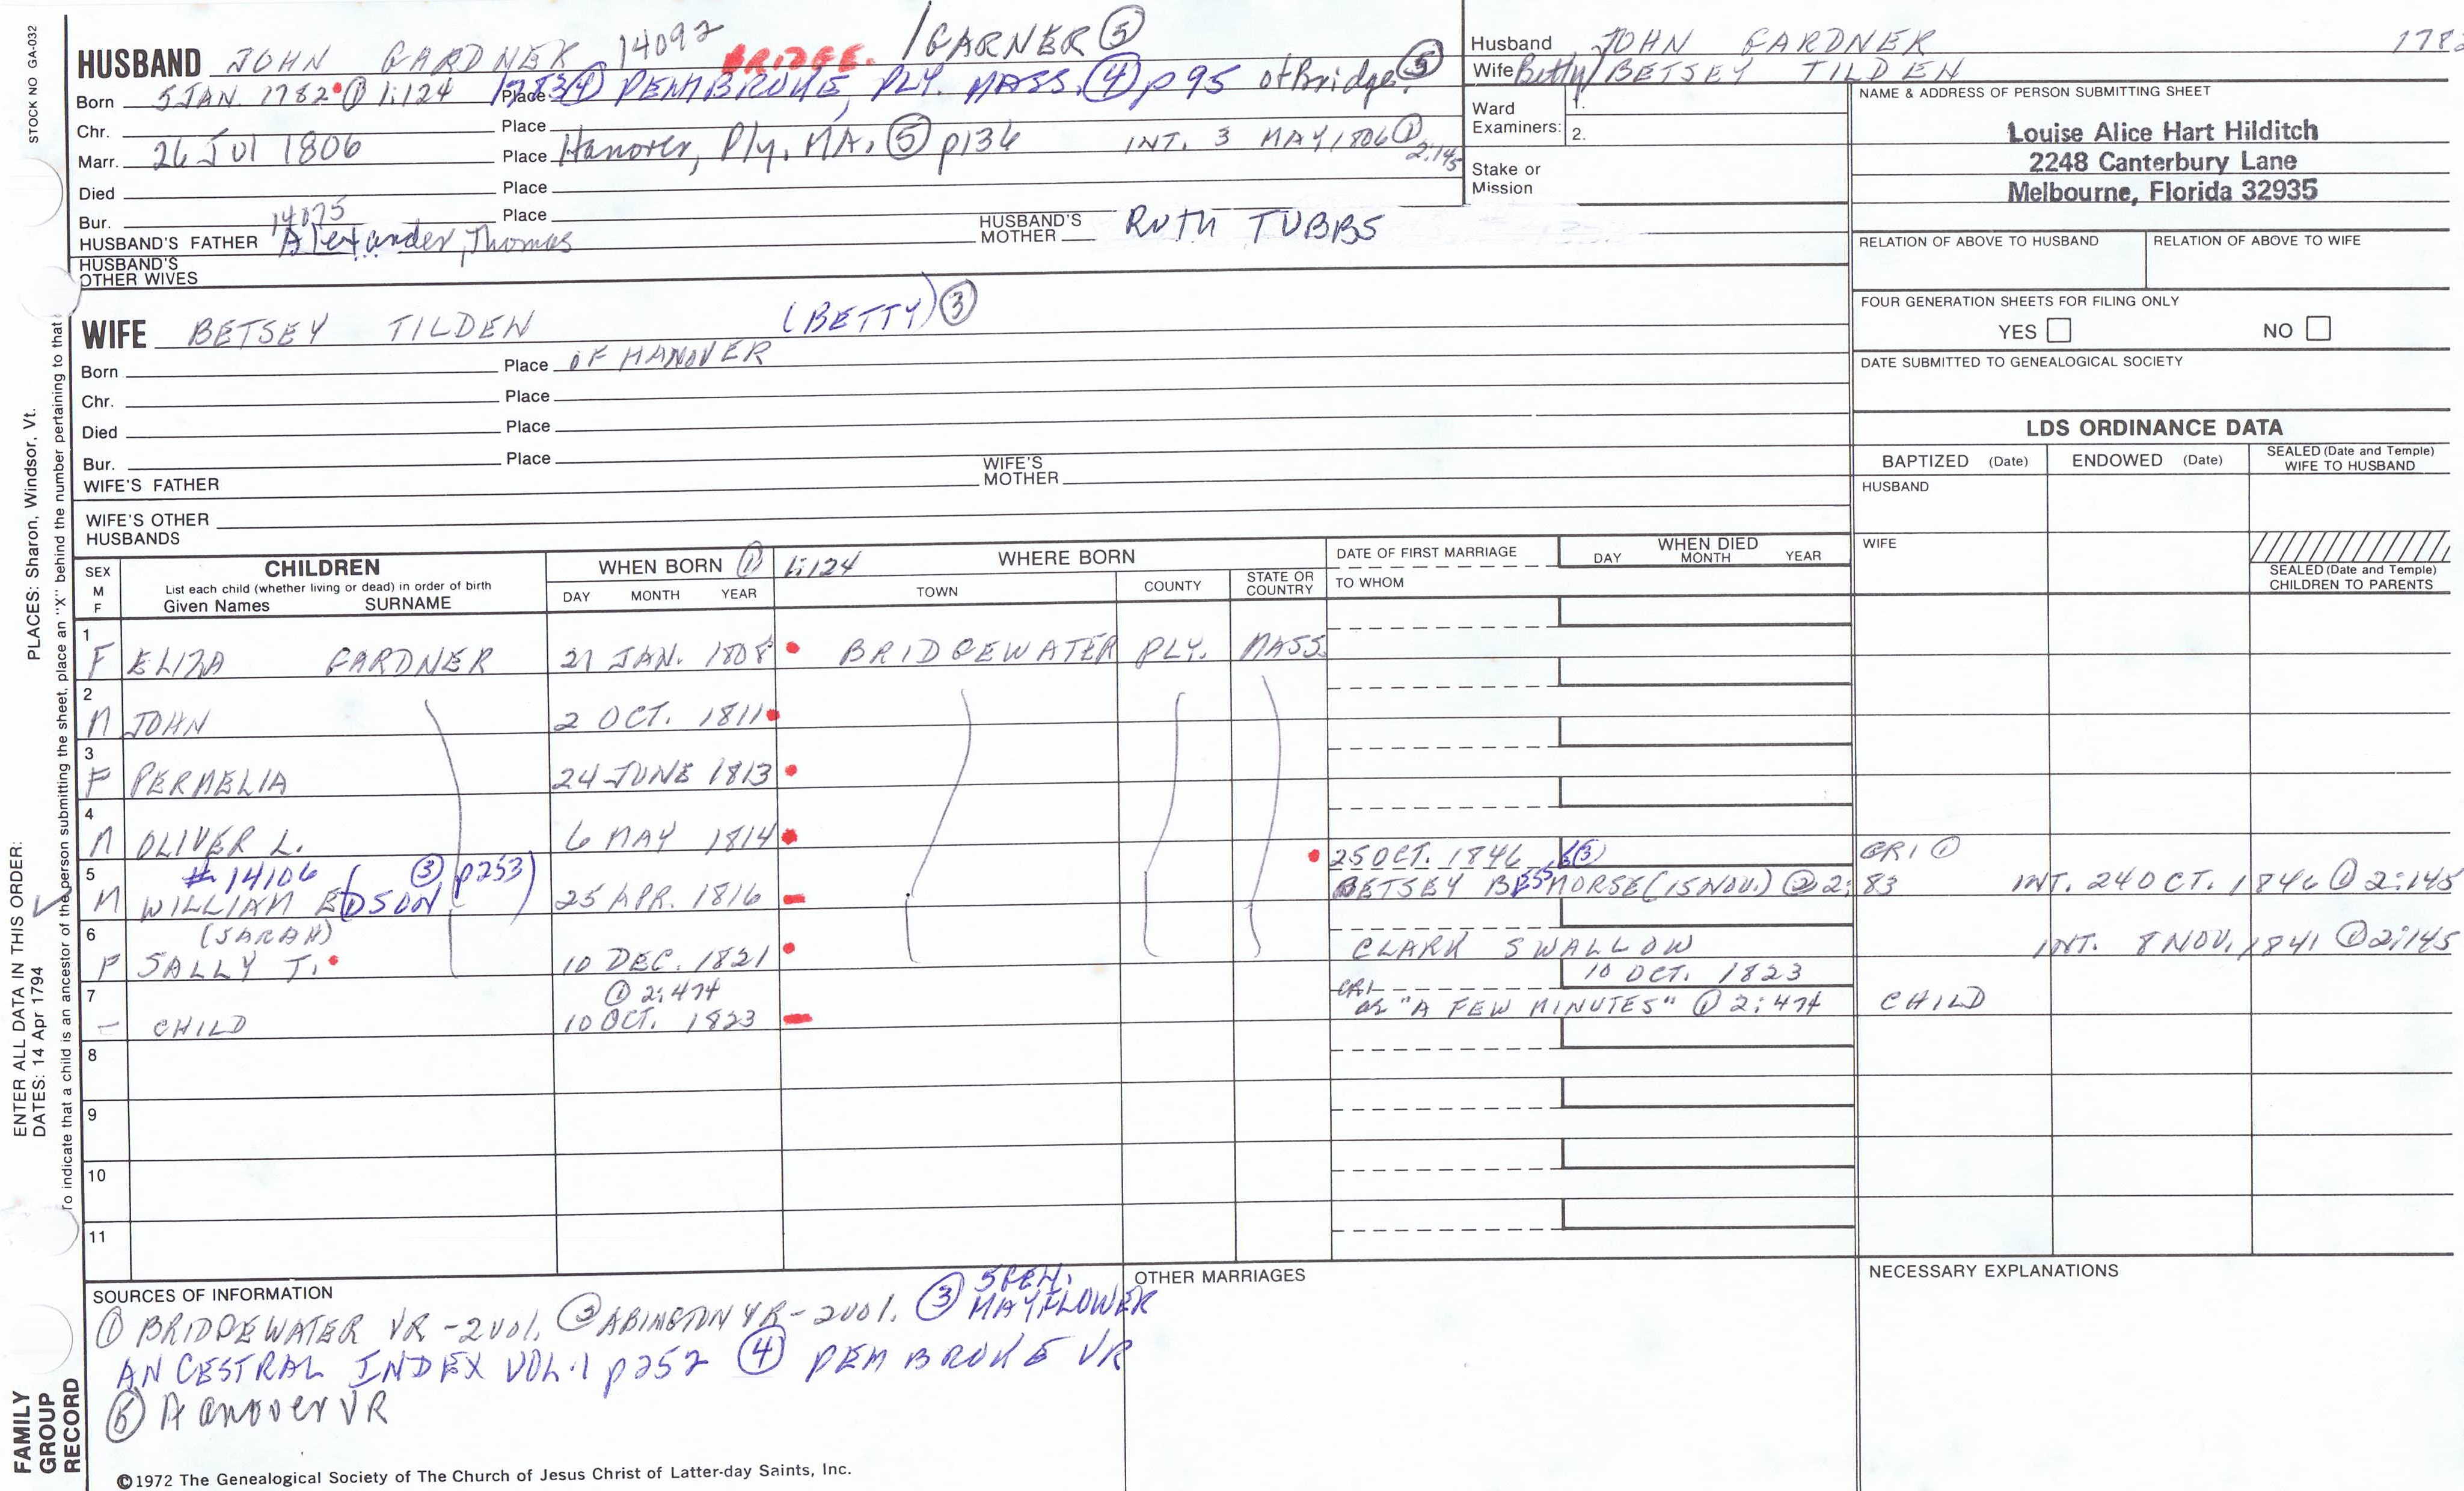 STOCK NO GA-032
HUSBAND JOHN GARDNER 14092 BRIDGE. /GARNER ⑤
Born 5 JAN. 1782 ① 1:124 1783④ Place PEMBROKE, PLY. MASS. ④ p95 of Bridge. ⑤
Chr. Place
Marr. 26 Jul 1806 Place Hanover, Ply. MA. ⑤ p136 INT. 3 MAY 1806 ① 2:145
Died Place
Bur. Place
14075
HUSBAND'S FATHER Alexander, Thomas HUSBAND'S MOTHER RUTH TUBBS
HUSBAND'S OTHER WIVES
WIFE BETSEY TILDEN (BETTY) ③
Born Place OF HANOVER
Chr. Place
Died Place
Bur. Place
WIFE'S FATHER WIFE'S MOTHER
WIFE'S OTHER HUSBANDS
Husband JOHN GARDNER
Wife Betty/BETSEY TILDEN
Ward Examiners: 1. 2.
Stake or Mission
NAME & ADDRESS OF PERSON SUBMITTING SHEET
Louise Alice Hart Hilditch
2248 Canterbury Lane
Melbourne, Florida 32935
RELATION OF ABOVE TO HUSBAND RELATION OF ABOVE TO WIFE
FOUR GENERATION SHEETS FOR FILING ONLY
YES NO
DATE SUBMITTED TO GENEALOGICAL SOCIETY
LDS ORDINANCE DATA
BAPTIZED (Date) ENDOWED (Date) SEALED (Date and Temple) WIFE TO HUSBAND
HUSBAND
WIFE
SEALED (Date and Temple) CHILDREN TO PARENTS
SEX M F CHILDREN List each child (whether living or dead) in order of birth Given Names SURNAME
WHEN BORN ① 1:124 DAY MONTH YEAR
WHERE BORN TOWN COUNTY STATE OR COUNTRY
DATE OF FIRST MARRIAGE TO WHOM
WHEN DIED DAY MONTH YEAR
1 F ELIZA GARDNER 27 JAN. 1808 BRIDGEWATER PLY. MASS.
2 M JOHN 2 OCT. 1811
3 F PERMELIA 24 JUNE 1813
4 M OLIVER L. 6 MAY 1814
5 #14106 (③ p253) 25 OCT. 1846 ③ CR1 ①
M WILLIAM EDSON 25 APR. 1816 BETSEY BESS MORSE (15 NOV.) ② 2:83 INT. 24 OCT. 1846 ① 2:145
6 (SARAH)
F SALLY T. 10 DEC. 1821 CLARK SWALLOW INT. 8 NOV. 1841 ① 2:145
7 ① 2:474 10 OCT. 1823
– CHILD 10 OCT. 1823 CR1 ae "A FEW MINUTES" ① 2:474 CHILD
8
9
10
11
SOURCES OF INFORMATION
① BRIDGEWATER VR - 2 vol. ② ABINGTON VR - 2 vol. ③ MAYFLOWER
ANCESTRAL INDEX VOL. 1 p252 ④ PEMBROKE VR
⑤ Hanover VR
OTHER MARRIAGES
NECESSARY EXPLANATIONS
©1972 The Genealogical Society of The Church of Jesus Christ of Latter-day Saints, Inc.
FAMILY GROUP RECORD
ENTER ALL DATA IN THIS ORDER:
DATES: 14 Apr 1794
PLACES: Sharon, Windsor, Vt.
To indicate that a child is an ancestor of the person submitting the sheet, place an "X" behind the number pertaining to that